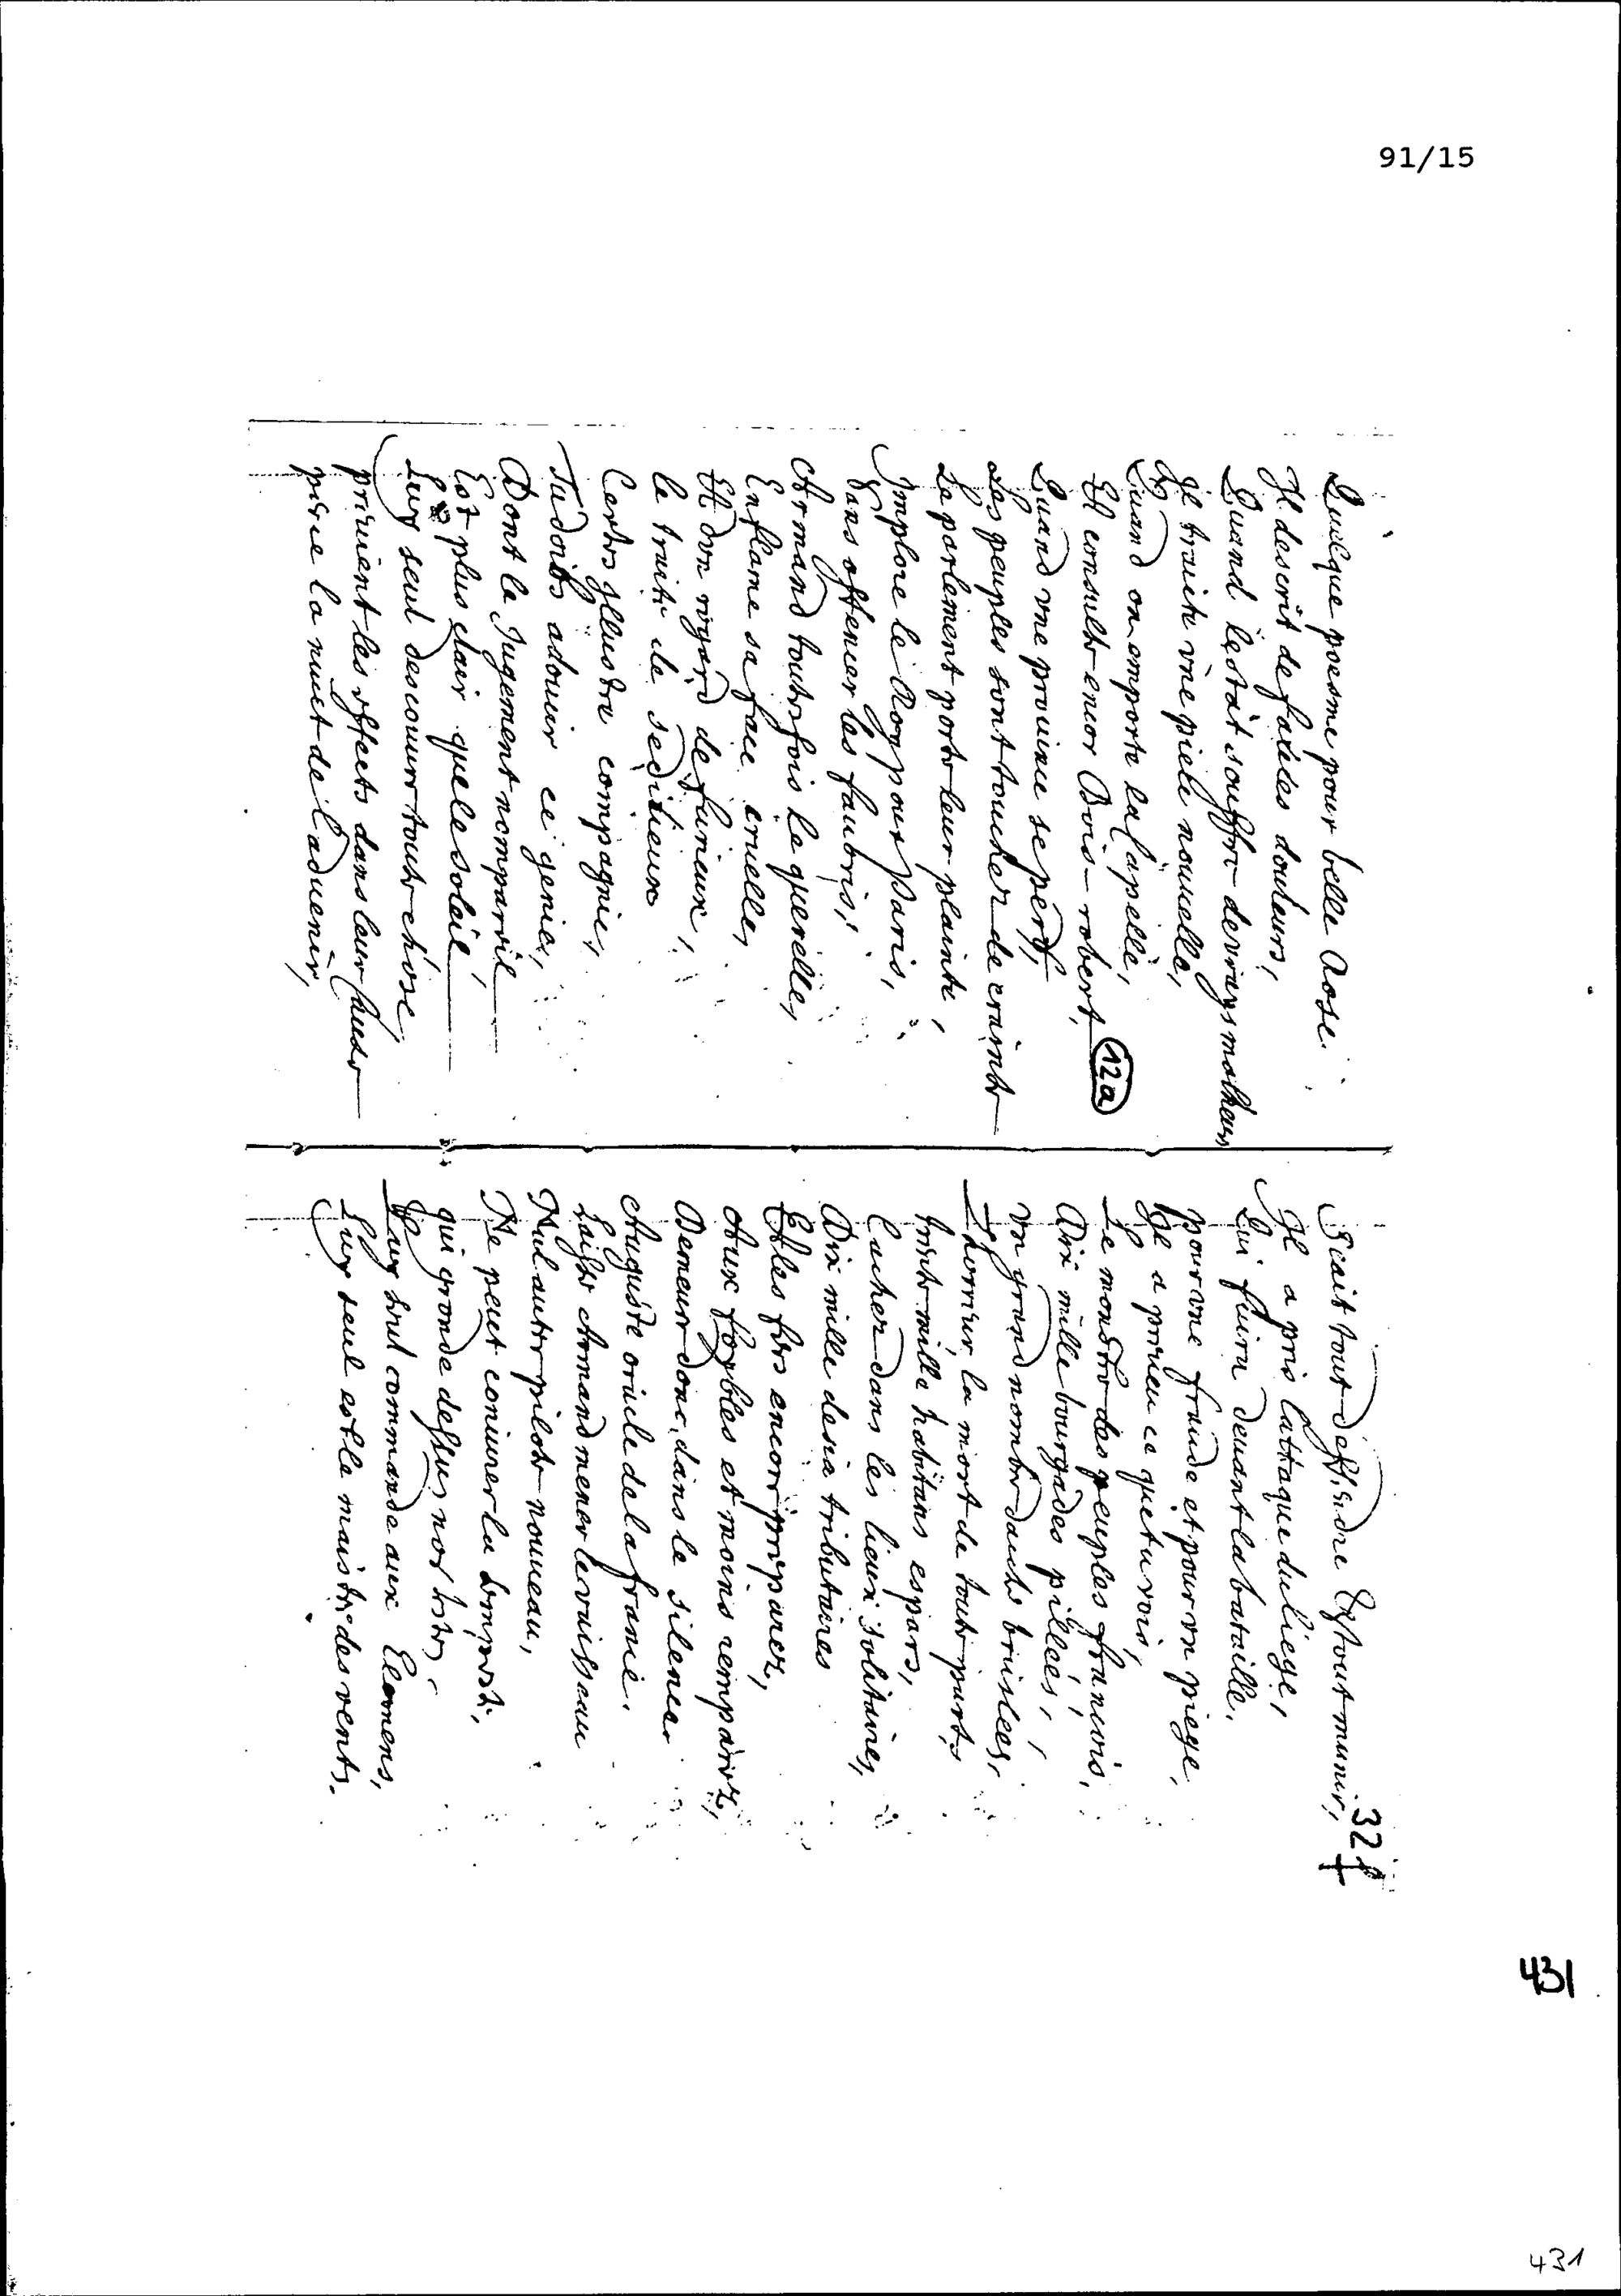 91/15
Quelque poesme pour belle Rose.
Il descrit de fades douleurs,
Quand lestat souffre de vrays malheurs
Il traite vne piele nouuelle,
Quand on emporte la Capelle,
Et consulte encor Bois-robert
12a
Quand vne prouince se perd,
Les peuples sont touchez de crainte
Le parlement porte leur plainte,
Implore le Roy pour Paris,
Sans offencer les fauoris,
Armand toutefois le querelle,
Enflame sa face cruelle,
Et dvn regard de furieux,
le traite de seditieux
Certes Illustre compagnie,
Tu dois adoucir ce genie,
Dont le Jugement nompareil
Est plus clair que le soleil
Luy seul descouure toute chose,
preuient les effects dans leur cause
perce la nuict de l'aduenir,
32
Scait tout deffendre Et tout munir,
Il a pris lattaque du liege,
Qui fuira deuant la bataille,
pour vne fraude et pour vn piege,
Il a preueu ce que tu vois,
Le monstre des peuples francois,
Dix mille bourgades pillées,
vn grand nombre dautres bruslees,
Lhorreur, la mort de toute parts,
trente mille habitans espars,
Cachez dans les lieux solitaires,
Dix mille desia tributaires
Et les fers encor preparez,
Aux foybles et moins remparez,
Demeure donc dans le silence
Auguste oracle de la france.
Laisse Armand mener le vaisseau
Nul autre pilote nouueau,
Ne peut coniurer la tempeste,
qui gronde dessus nos testes,
Luy seul commande aux Elemens,
Luy seul est le maistre des vents.
431
431